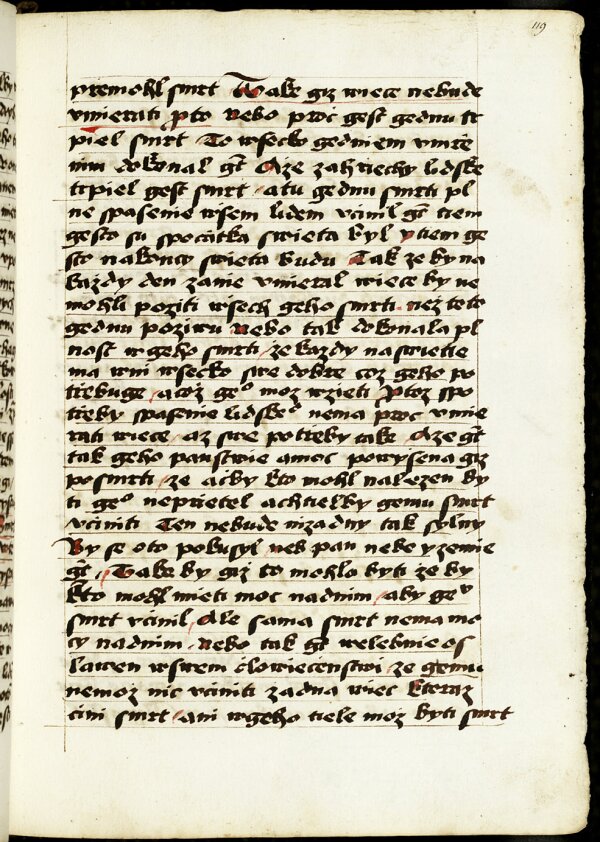 119
przemohl smrt Take giz wiece nebude
vmierati pto Nebo proc gest gednu tr
piel smrt To wsecko gedniem vmrze
nim dokonal gt Aze zahrziechy lidske
trpiel gest smrt atu gednu smrti pl
ne spasenie wsem lidem vcinil gt tiem
gesto su spocatka swieta byl ytiem ge
sto nakoncy swieta budu Tak ze by na
kazdy den zanie vmieral wiece by ne
mohli poziti wsech geho smrti nez teto
gednu poziwu Nebo tak dokonala pl
nost wgeho smrti ze kazdy naswietie
ma wni wsecko swe dobre coz geho po
trzebuge acoz geo moz wzieti Ptoz spo
trzeby spasenie lidskeo nema proc vmie
rati wiece az swe potrzeby take Aze gt
tak geho panstwie a moc powysena giz
posmrti ze acby kto mohl nalezen by
ti geo neprzietel achtielby gemu smrt
vciniti Ten nebude nizadny tak sylny
By se oto pokusyl neb pan nebe yzemie
gt Takeby giz to mohlo byti ze by
kto mohl mieti moc nadnim aby geo
smrt vcinil Ale sama smrt nema mo
cy nadnim nebo tak gt welebnie os
lawen wswem clowieczenstwi ze gemu
nemoz nic vciniti zadna wiec kteraz
cini smrt ani wgeho tiele moz byti smrt